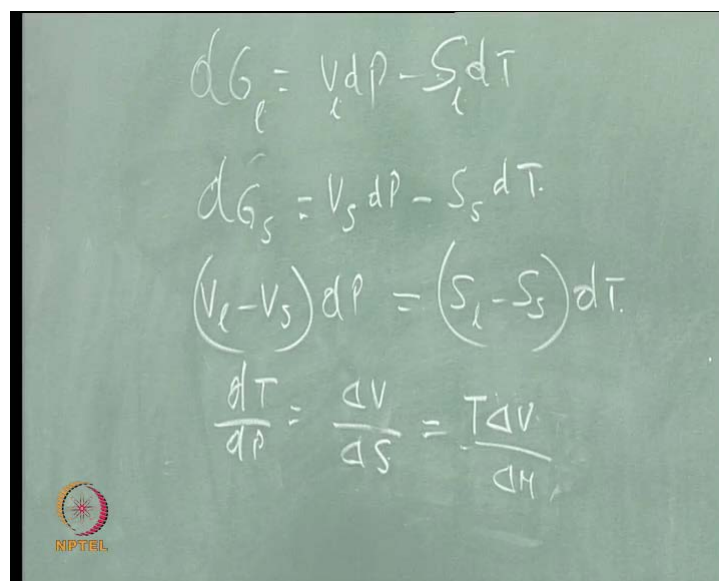 dG_l = V_l dP - S_l dT
dG_s = V_s dP - S_s dT.
(V_l - V_s) dP = (S_l - S_s) dT.
dT/dP = ΔV/ΔS = TΔV/ΔH
NPTEL